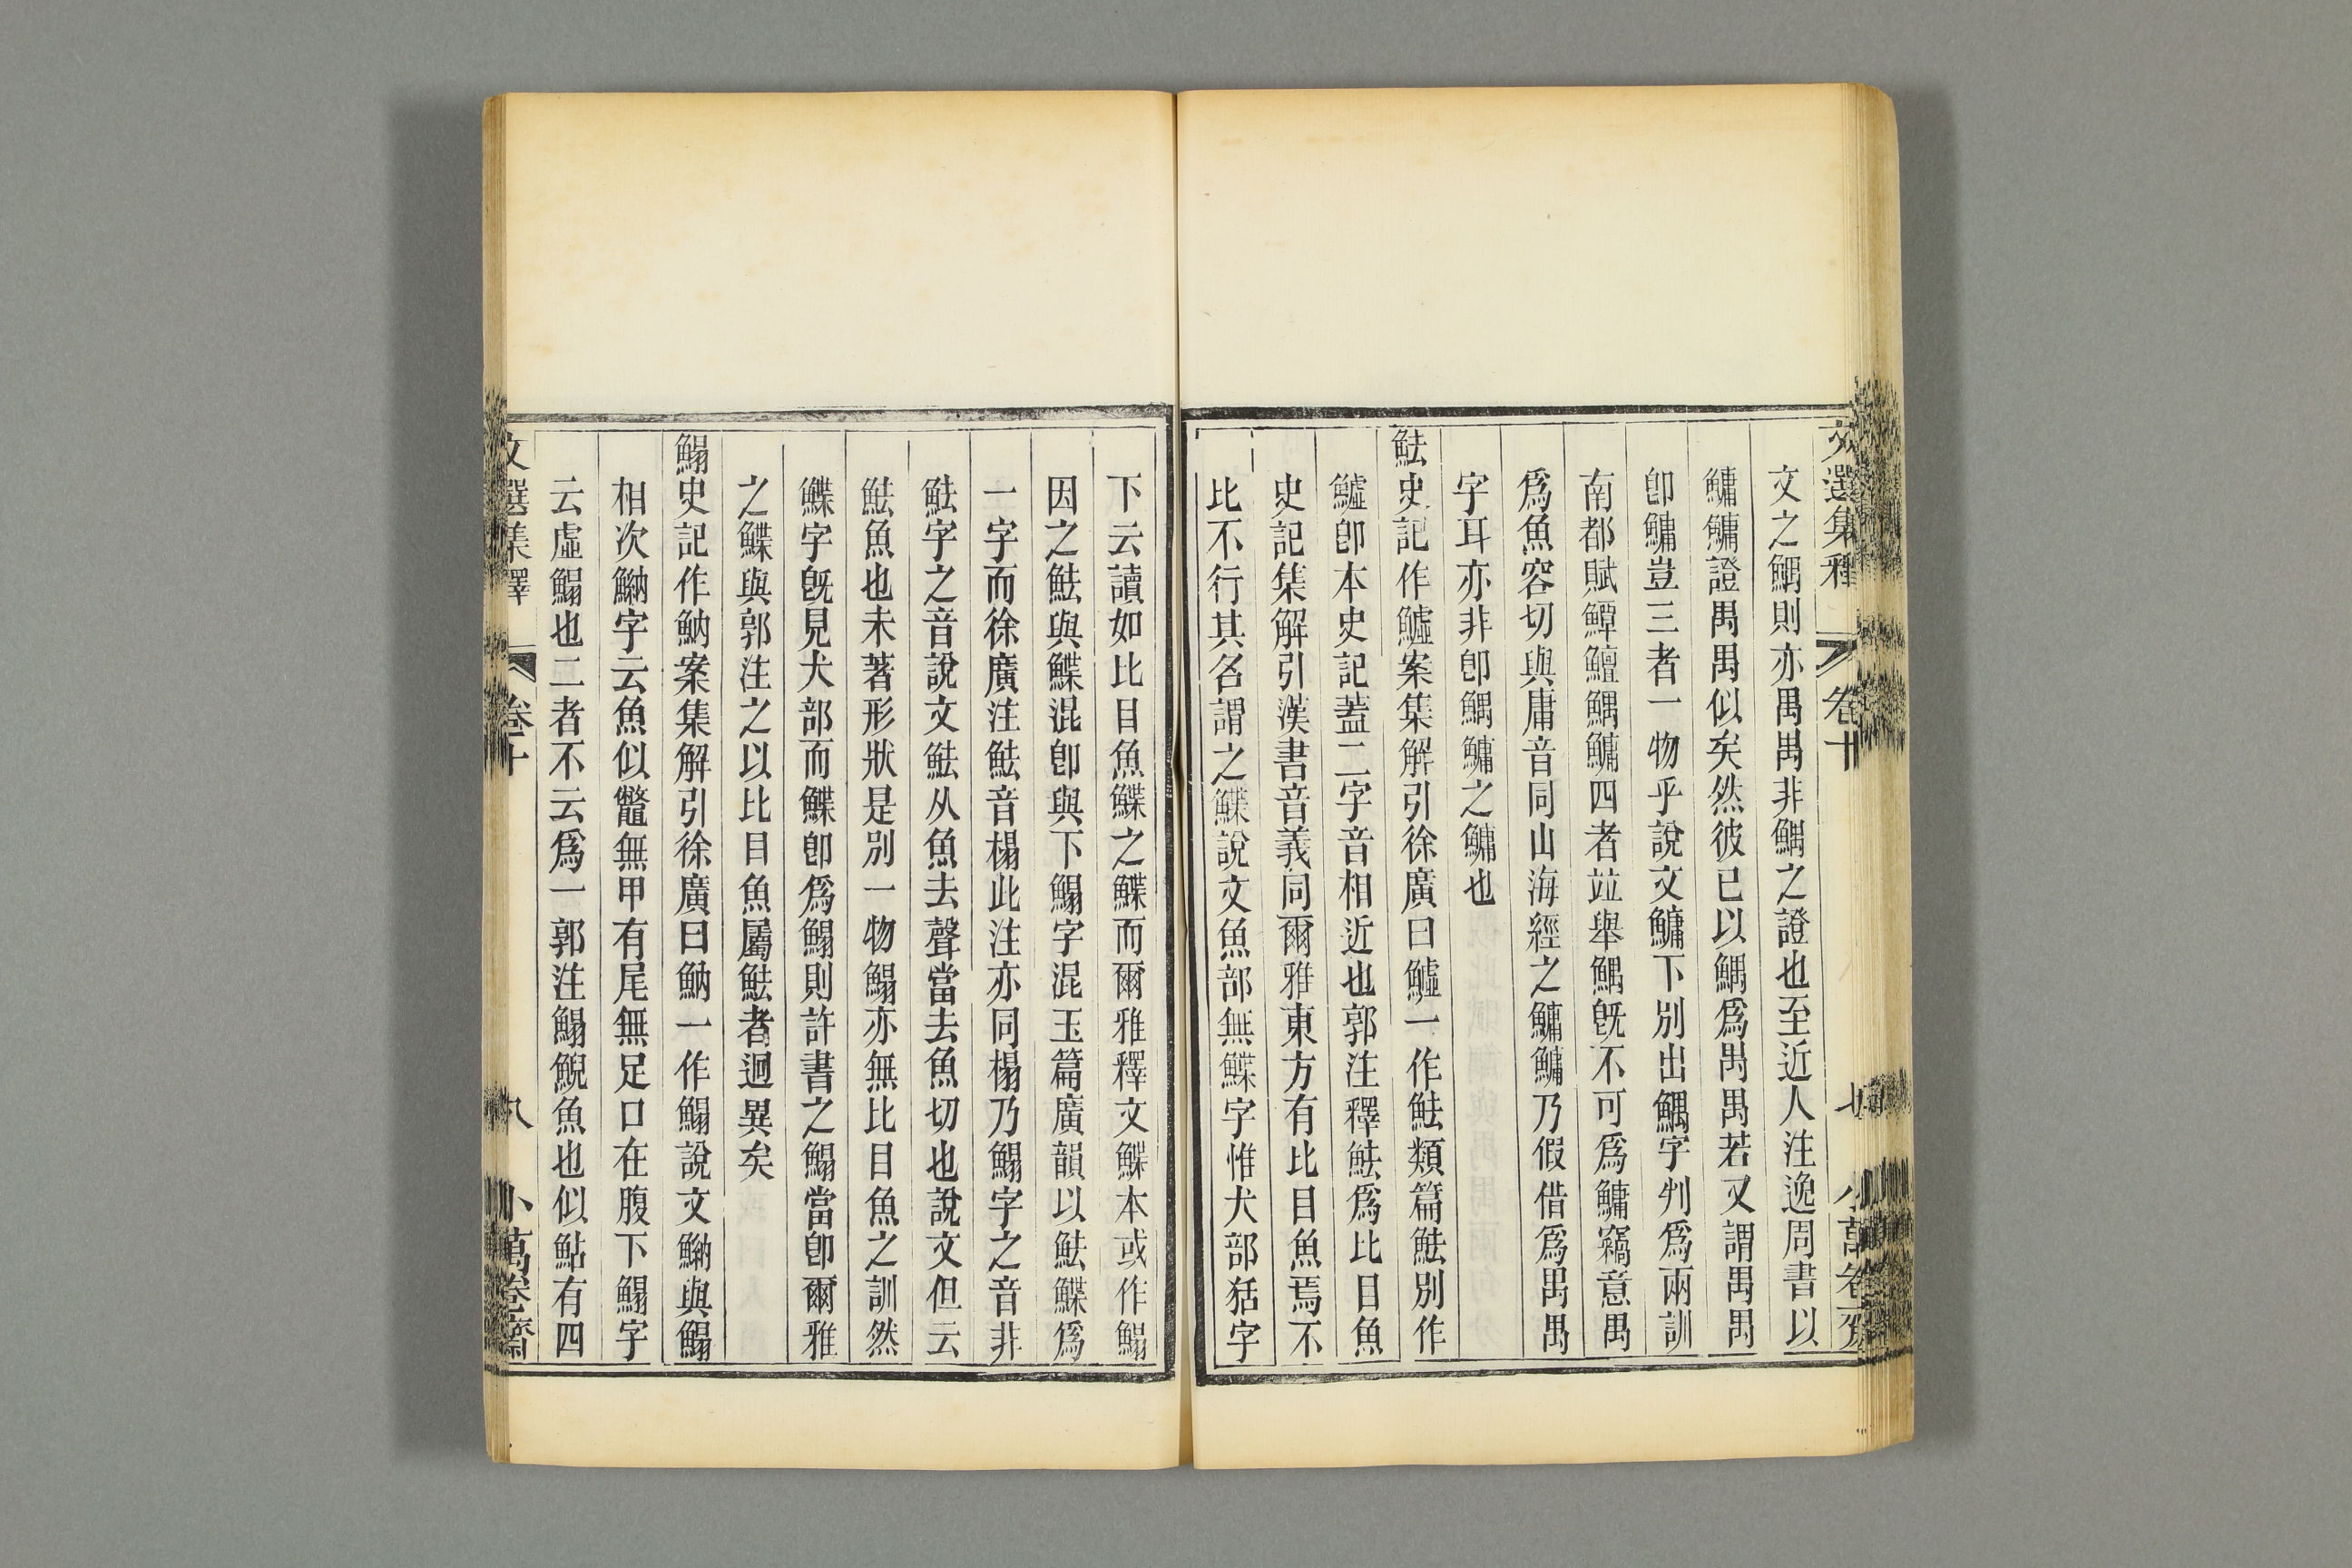 文選集釋 卷十 七 小萬卷齋
文之鰅則亦禺禺非鰅之證也至近人注逸周書以
鱅鱅證禺禺似矣然彼已以鰅爲禺禺若又謂禺禺
卽鱅豈三者一物乎說文鱅下別出鰅字判爲兩訓
南都賦鱏鱣鰅鱅四者竝舉鰅旣不可爲鱅竊意禺
爲魚容切與庸音同山海經之鱅鱅乃假借爲禺禺
字耳亦非卽鰅鱅之鱅也
魼史記作鱋案集解引徐廣曰鱋一作魼類篇魼別作
鱋卽本史記蓋二字音相近也郭注釋魼爲比目魚
史記集解引漢書音義同爾雅東方有比目魚焉不
比不行其名謂之鰈說文魚部無鰈字惟犬部狧字
下云讀如比目魚鰈之鰈而爾雅釋文鰈本或作鰨
因之魼與鰈混卽與下鰨字混玉篇廣韻以魼鰈爲
一字而徐廣注魼音榻此注亦同榻乃鰨字之音非
魼字之音說文魼从魚去聲當去魚切也說文但云
魼魚也未著形狀是別一物鰨亦無比目魚之訓然
鰈字旣見犬部而鰈卽爲鰨則許書之鰨當卽爾雅
之鰈與郭注之以比目魚屬魼者迥異矣
鰨史記作魶案集解引徐廣曰魶一作鰨說文魶與鰨
相次魶字云魚似鼈無甲有尾無足口在腹下鰨字
云虛鰨也二者不云爲一郭注鰨鯢魚也似鮎有四
文選集釋 卷十 八 小萬卷齋